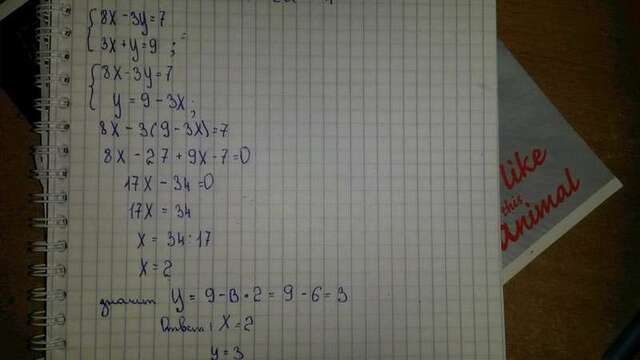 8x - 3y = 7
3x + y = 9 ;
8x - 3y = 7
y = 9 - 3x ;
8x - 3(9 - 3x) = 7
8x - 27 + 9x - 7 = 0
17x - 34 = 0
17x = 34
x = 34 : 17
x = 2
значит y = 9 - 3 • 2 = 9 - 6 = 3
Ответ: x = 2
y = 3
like
this
animal